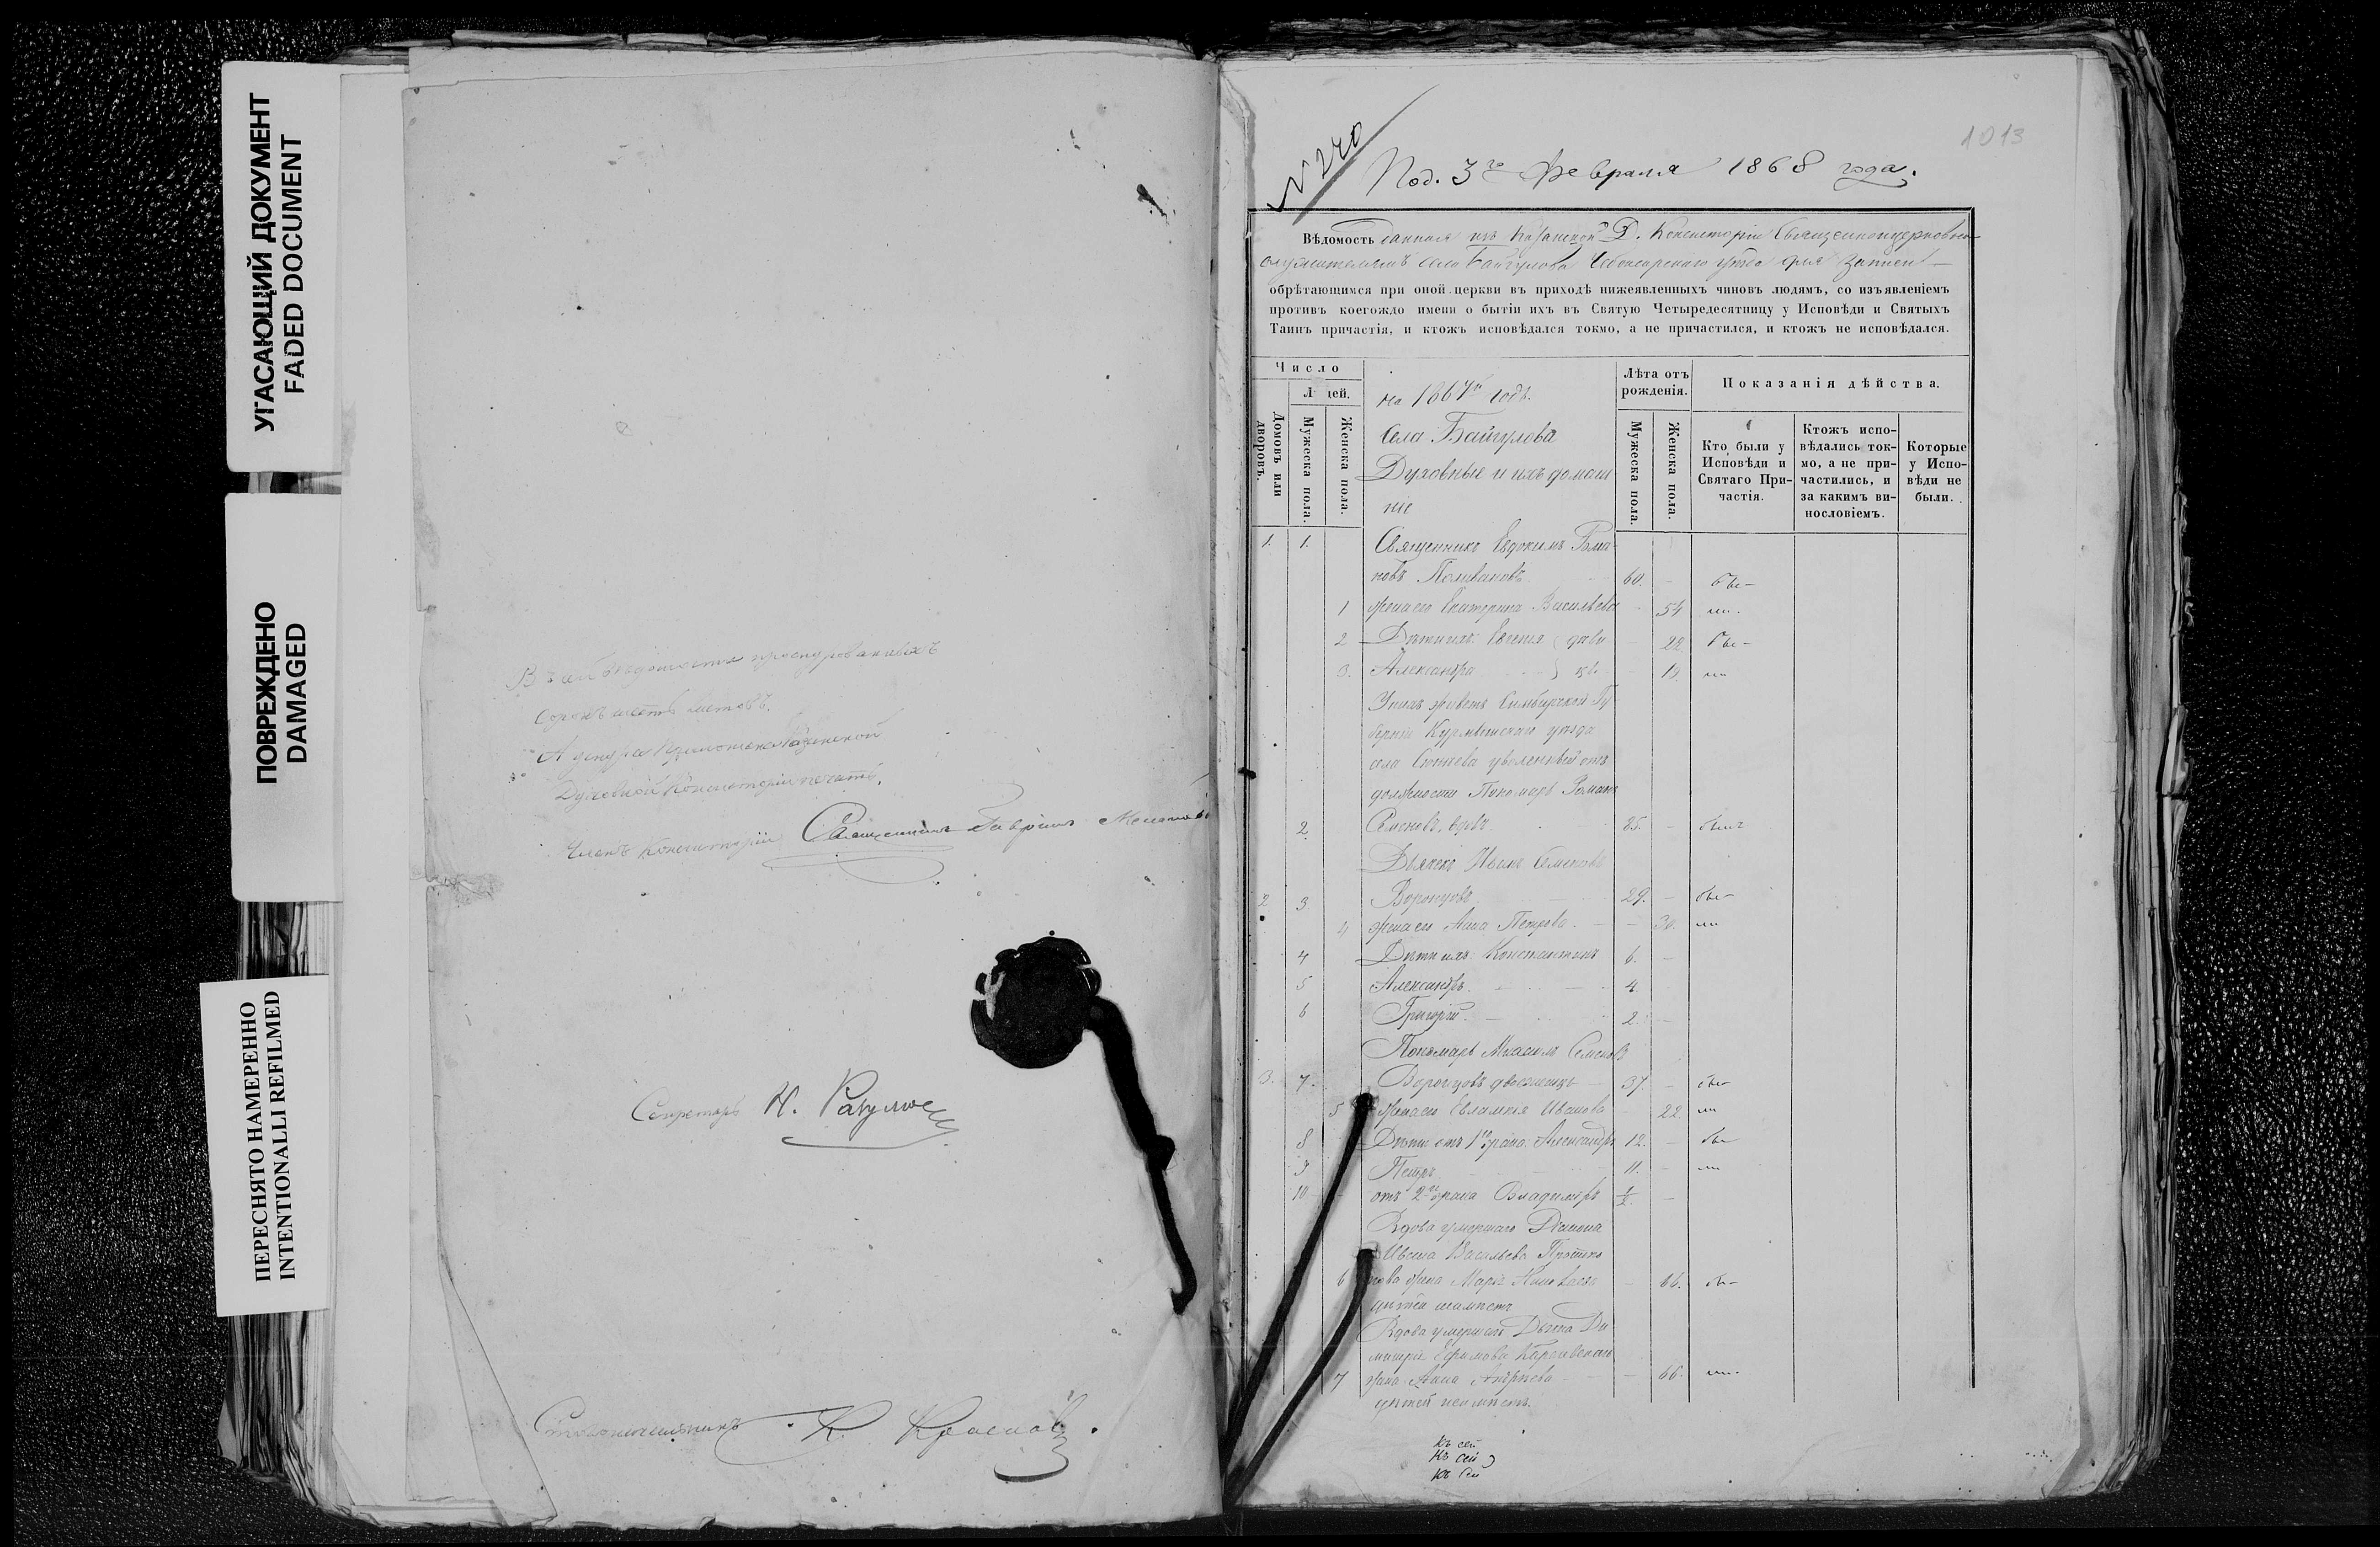 УГАСАЮЩИЙ ДОКУМЕНТ
FADED DOCUMENT
ПОВРЕЖДЕНО
DAMAGED
ПЕРЕСНЯТО НАМЕРЕННО
INTENTIONALLI REFILMED
прошнурованныхъ
сорокъ листовъ.
Казанской
Духовной Консисторіи печать.
Членъ Консисторіи Священникъ Гавріилъ
Секретарь Н.
Столоначальникъ К. Красновъ.
1013
№ 240
Под. 3го Февраля 1868 года.
Вѣдомость данная изъ Казанской Д. Консисторіи Священноцерковно-
служителямъ села Байгулова Чебоксарскаго уѣзда для записи
обрѣтающимся при оной церкви въ приходѣ нижеявленныхъ чиновъ людямъ, со изъявленіемъ
противъ коегождо имени о бытіи ихъ въ Святую Четыредесятницу у Исповѣди и Святыхъ
Таинъ причастія, и ктожъ исповѣдался токмо, а не причастился, и ктожъ не исповѣдался.
Число
Домовъ или дворовъ.
Мужеска пола.
Женска пола.
Лѣта отъ
рожденія.
Мужеска пола.
Женска пола.
Показанія дѣйства.
Кто были у
Исповѣди и
Святаго При-
частія.
Ктожъ испо-
вѣдались ток-
мо, а не при-
частились, и
за какимъ ви-
нословіемъ.
Которые
у Испо-
вѣди не
были.
на 1867й годъ.
Села Байгулова
Духовные и ихъ домаш
ніе
1. 1. Священникъ Евдокимъ Рома-
новъ Поливановъ 60. – бы –
1 жена его Екатерина Васильева – 54
2 Дѣти ихъ: Евгенія дѣви – 22 бы –
3. Александра цы. –
У нихъ живетъ Симбирской Гу
берніи Курмышскаго уѣзда
села уволенный отъ
должности Пономарь Романъ
2. Семеновъ, вдовъ 85. –
Дьячекъ Иванъ Семеновъ
2 3. Воронцовъ 29. –
4 жена его Анна Петрова. – – 30.
4 Дѣти ихъ: Константинъ 6. –
5 Александръ. 4
6 Григорій. 2. –
Пономарь Михаилъ Семеновъ
3. 7. Воронцовъ двоеженецъ 37. –
5 жена его Евлампія Иванова – 22
8 Дѣти отъ 1го брака: Александръ 12. –
9 Петръ 11. –
10 отъ 2го брака Владиміръ ½ –
Вдова умершаго Діакона
Ивана Васильева
6 жена Марія – 66.
дѣтей неимѣетъ
Вдова умершаго Дьячка Ди
митрія Ефимова
7 жена Анна Андреева – 66.
дѣтей неимѣетъ.
Къ сей
Къ сей
Къ сей